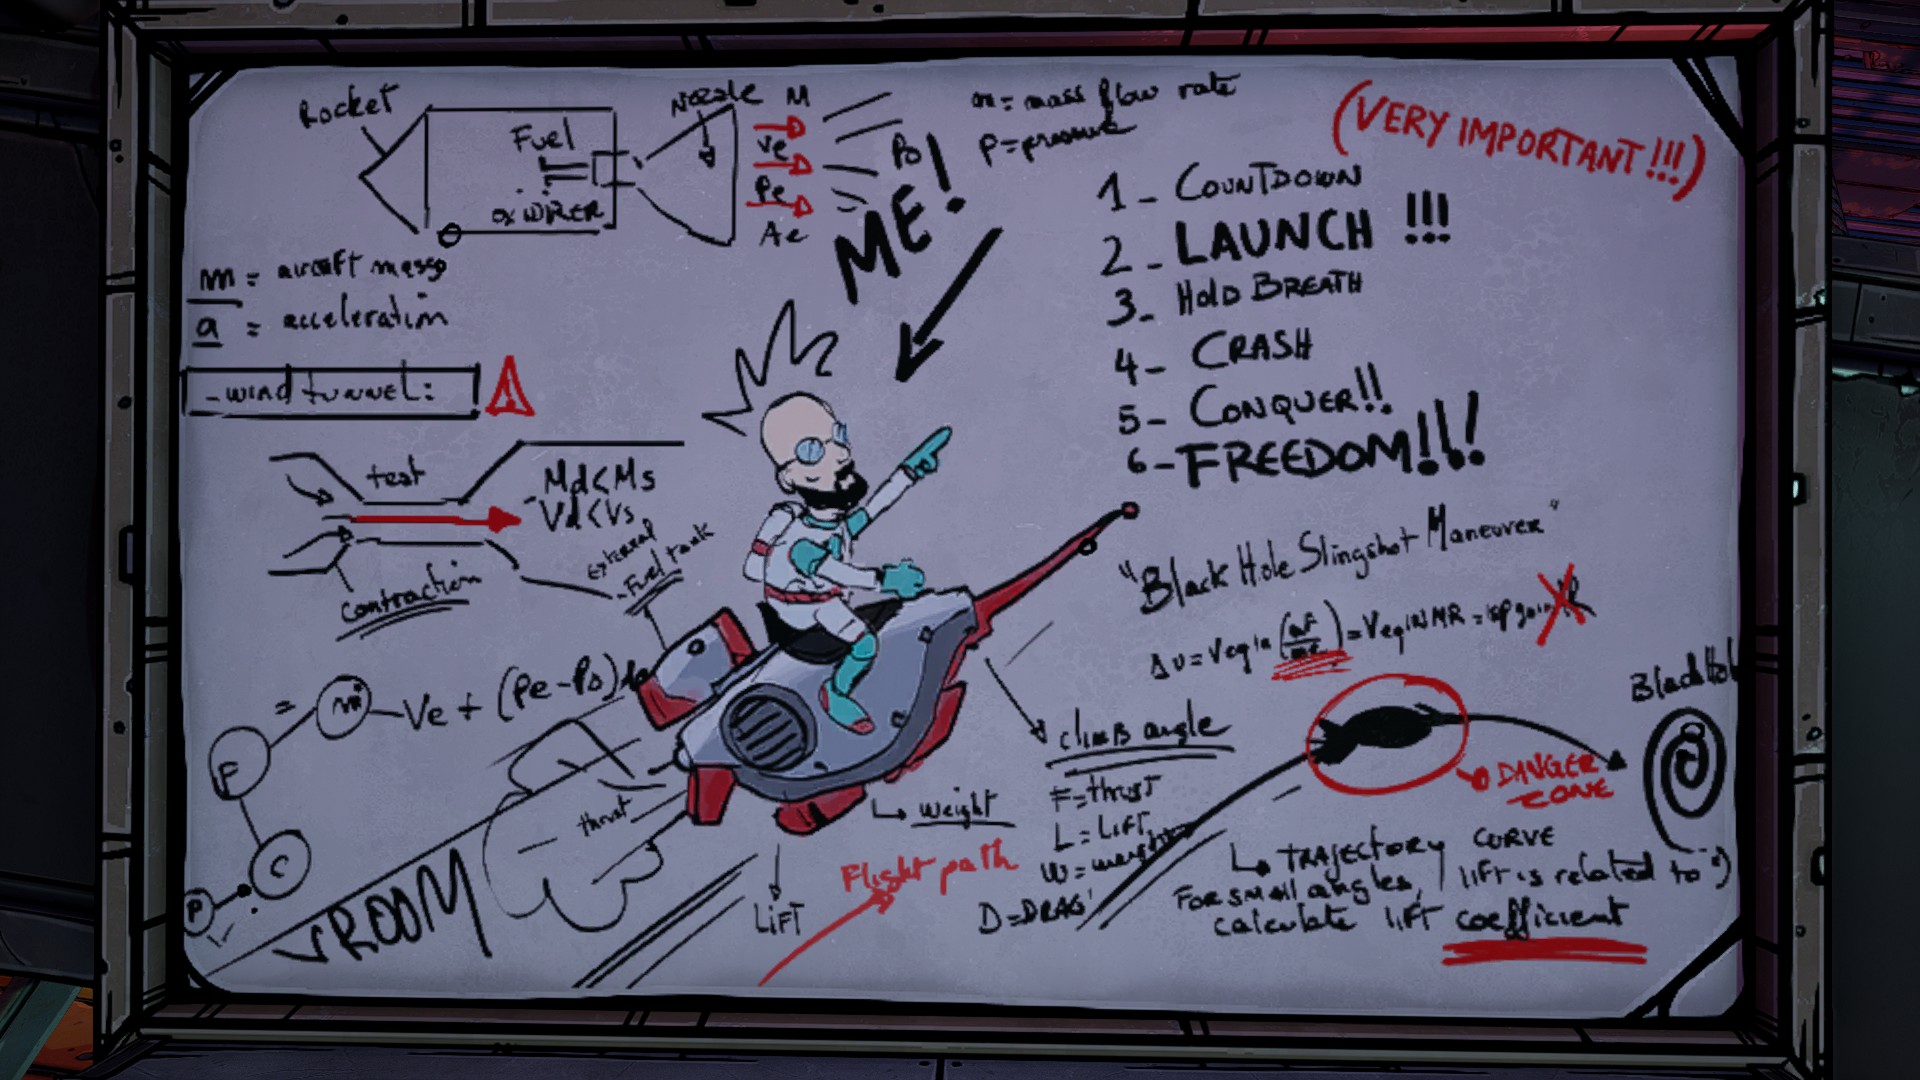 Rocket
Fuel
Nozzle
M
Ve
Pe
Ae
Po
m = mass flow rate
P = pressure
(VERY IMPORTANT!!!)
ME!
1 - COUNTDOWN
2 - LAUNCH !!!
3 - HOLD BREATH
4 - CRASH
5 - CONQUER!!
6 - FREEDOM!!!
m = aircraft
a = acceleration
- wind tunnel:
test
Md<Ms
Vd<Vs
contraction
External
- Fuel tank
"Black Hole Slingshot Maneuver"
Black Hol
= m - Ve + (Pe-Po)
F
C
P
thrust
VROOM
weight
LIFT
Flight path
climb angle
F = thrust
L = LIFT
W =
D = DRAG
DANGER
ZONE
TRAJECTORY CURVE
FOR small angles, lift is related to
calculate lift coefficient